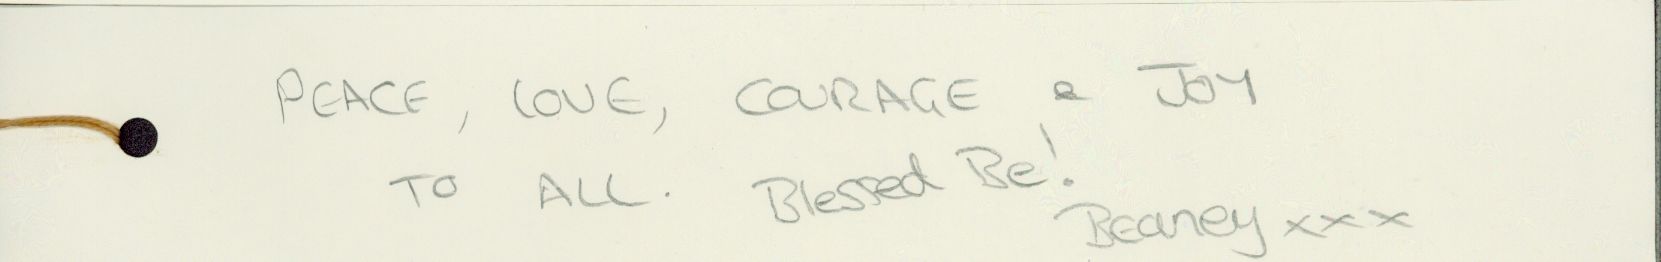 PEACE, LOVE, COURAGE & JOY
TO ALL. Blessed Be!
Beaney xxx